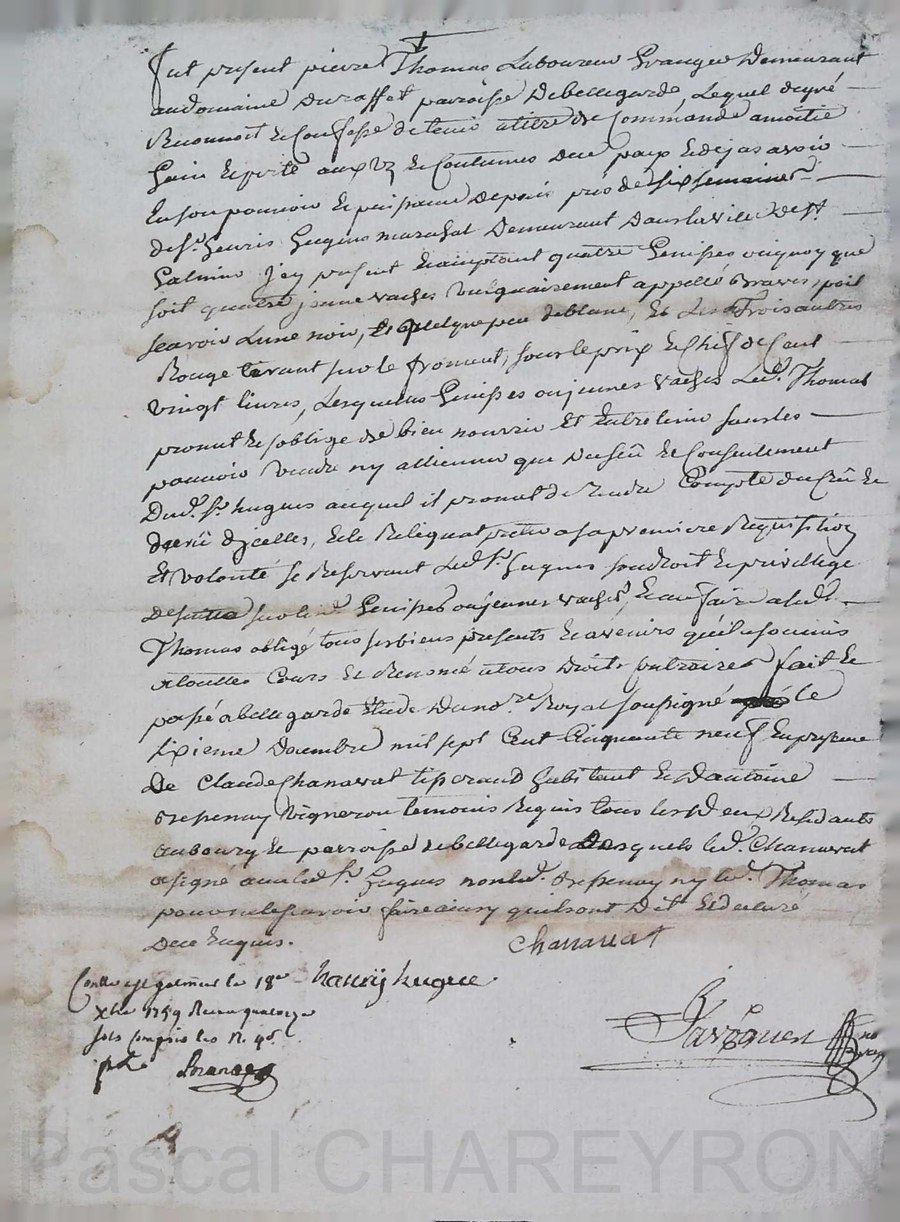 fut present pierre Thomas Laboureur Granger Demeurant
au domaine Duraffet parroisse De bellegarde Lequel de gré
Reconnoit et Confesse de tenir a titre de Commande a moitie
Gain et perte aux uz et Coutumes de ce pays et de ja avoir
En son pouvoir et puissance depuis près de six semaines
de Sr. henris hugues marechal Demeurant Dans la ville de St
Galmier Icy present et acceptant quatre Genisses ou quoy que
soit quatre jeune vaches vulgairement appellé Braves, poil
scavoir L'une noir, et quelque peu de blanc, Et Les Trois autres
Rouge tirant sur le froment, sous le prix et chef de Cent
vingt livres, Lesquelles Genisses ou jeunes vaches Led. Thomas
promet et s'oblige de bien nourrir Et Entretenir sans les
pouvoir vendre ny alliener que du sceu et Consentement
Dud. Sr. hugues auquel il promet de Rendre Compte du Crû et
decrû d'jcelles, Et le Reliquat preter a sa premiere Requisition
Et volonté se Reservant Led. Sr. hugues son droit et privillege
De suitte sur lesd. Genisses ou jeunes vaches, Et au faire a led.
Thomas obligé tous ses biens presents et avenirs qu'il a soumis
a toutes Cours et Renoncé a tous Droits Contraires fait et
passé a bellegarde Etude Du nore. Royal soussigné le
sixieme Decembre mil sept Cent Cinquante neuf En presence
De Claude Chanavat tisserand habitant et D'antoine
Bressenay Vigneron temoins Requis tous les deux Residants
au bourg et parroisse de bellegarde Desquels led. Chanavat
a signé avec led. Sr. hugues non led. Bressenay ny led. Thomas
pour ne le scavoir faire ainsy qu'ils ont Dit et declaré
De ce Enquis.
Chanavat
hanrij hugue
Conllé a st galmier le 18e
Xbre 1759 Receu quatorze
sols compris les